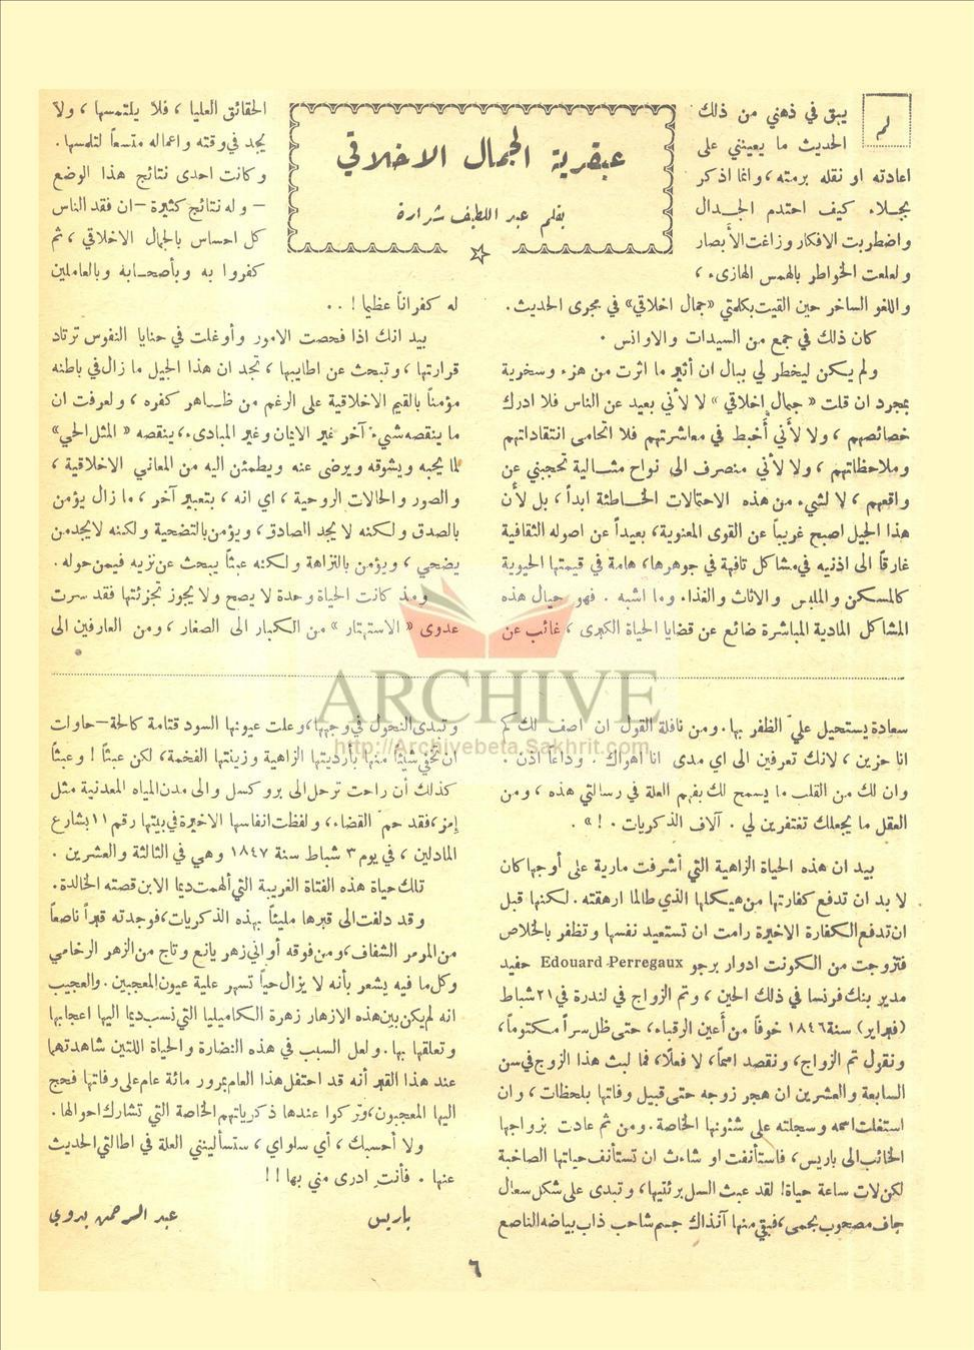 عبقرية الجمال الاخلاقي
بقلم عبد اللطيف شرارة
لم
يبق في ذهني من ذلك
الحديث ما يعينني على
اعادته او نقله برمته، وانما اذكر
بجلاء كيف احتدم الجـدال
واضطربت الافكار وزاغت الأبصار
ولعلعت الخواطر بالهمس الهازىء،
واللغو الساخر حين القيت بكلمتي «جمال اخلاقي» في مجرى الحديث.
كان ذلك في جمع من السيدات والاوانس.
ولم يكن ليخطر لي ببال ان أثير ما اثرت من هزء وسخرية
بمجرد ان قلت «جمال اخلاقي» لا لأني بعيد عن الناس فلا ادرك
خصائصهم، ولا لأني أخبط في معاشرتهم فلا اتحامى انتقاداتهم
وملاحظاتهم، ولا لأني منصرف الى نواح مثـالية تحجبني عن
واقعهم، لا لشيء من هذه الاحتمالات الخـاطئة ابداً، بل لأن
هذا الجيل اصبح غريباً عن القوى المعنوية، بعيداً عن اصوله الثقافية
غارقاً الى اذنيه في مشاكل تافهة في جوهرها، هامة في قيمتها الحيوية
كالمسكن والملبس والاثاث والغذاء وما اشبه. فهو حيال هذه
المشاكل المادية المباشرة ضائع عن قضايا الحياة الكبرى، غائب عن
الحقائق العليا، فلا يلتمسها، ولا
يجد في وقته واعماله متسعاً لتلمسها.
وكانت احدى نتائج هذا الوضع
– وله نتائج كثيرة – ان فقد الناس
كل احساس بالجمال الاخلاقي، ثم
كفروا به وبأصحـابه وبالعاملين
له كفراناً عظيما!..
بيد انك اذا فحصت الامور وأوغلت في حنايا النفوس ترتاد
قرارتها، وتبحث عن اطاييبها، تجد ان هذا الجيل ما زال في باطنه
مؤمناً بالقيم الاخلاقية على الرغم من ظـاهر كفره، ولعرفت ان
ما ينقصه شيء آخر غير الايمان وغير المبادىء، ينقصه «المثل الحي»
لما يحبه ويشوقه ويرضى عنه ويطمئن اليه من المعاني الاخلاقية،
والصور والحالات الروحية، اي انه، بتعبير آخر، ما زال يؤمن
بالصدق ولكنه لا يجد الصادق، ويؤمن بالتضحية ولكنه لا يجد من
يضحي، ويؤمن بالنزاهة ولكنه عبثاً يبحث عن نزيه فيمن حوله.
ومذ كانت الحياة وحدة لا يصح ولا يجوز تجزئتها فقد سرت
عدوى «الاستهتار» من الكبار الى الصغار، ومن العارفين الى
ARCHIVE
http://Archivebeta.Sakhrit.com
سعادة يستحيل عليّ الظفر بها. ومن نافلة القول ان اصف لك كم
انا حزين، لانك تعرفين الى اي مدى انا اهواك. وداعاً اذن.
وان لك من القلب ما يسمح لك بفهم العلة في رسالتي هذه، ومن
العقل ما يجعلك تغتفرين لي. آلاف الذكريات.!».
بيد ان هذه الحياة الزاهية التي أشرفت مارية على أوجها كان
لا بد ان تدفع كفارتها من هيكلها الذي طالما ارهقته. لكنها قبل
ان تدفع الكفارة الاخيرة رامت ان تستعيد نفسها وتظفر بالخلاص
فتزوجت من الكونت ادوار برجو Edouard Perregaux حفيد
مدير بنك فرنسا في ذلك الحين، وتم الزواج في لندرة في ٢١ شباط
(فبراير) سنة ١٨٤٦ خوفاً من أعين الرقباء، حتى ظل سراً مكتوماً،
ونقول تم الزواج، ونقصد اسماً، لا فعلاً، فما لبث هذا الزوج في سن
السابعة والعشرين ان هجر زوجه حتى قبيل وفاتها بلحظات، وان
استغلت اسمه وسجلته على شئونها الخاصة. ومن ثم عادت بزواجها
الخائب الى باريس، فاستأنفت او شاءت ان تستأنف حياتها الصاخبة
لكن لات ساعة حياة! لقد عبث السل برئتيها، وتبدى على شكل سعال
جاف مصحوب بحمى، فبقي منها آنذاك جسم شاحب ذاب بياضه الناصع
وتبدى النحول في وجهها، وعلت عيونها السود قتامة كالحة – حاولت
ان تخفي شيئاً منها بأرديتها الزاهية وزينتها الفخمة، لكن عبثاً! وعبثاً
كذلك أن راحت ترحل الى بروكسل والى مدن المياه المعدنية مثل
إمز، فقد حم القضاء، ولفظت انفاسها الاخيرة في بيتها رقم ١١ بشارع
المادلين، في يوم ٣ شباط سنة ١٨٤٧ وهي في الثالثة والعشرين.
تلك حياة هذه الفتاة الغريبة التي ألهمت ديما الابن قصته الخالدة.
وقد دلفت الى قبرها مليئاً بهذه الذكريات، فوجدته قبراً ناصعاً
من المرمر الشفاف، ومن فوقه أواني زهر يانع وتاج من الزهر الرخامي
وكل ما فيه يشعر بأنه لا يزال حياً تسهر علية عيون المعجبين. والعجيب
انه لم يكن بين هذه الازهار زهرة الكاميليا التي نسب ديما اليها اعجابها
وتعلقها بها. ولعل السبب في هذه النضارة والحياة اللتين شاهدتهما
عند هذا القبر أنه قد احتفل هذا العام بمرور مائة عام على وفاتها فحج
اليها المعجبون، وتركوا عندها ذكرياتهم الخاصة التي تشارك احوالها.
ولا أحسبك، أي سلواي، ستسألينني العلة في اطالتي الحديث
عنها. فأنت ادرى مني بها!!
باريس
عبد الرحمن بدوي
٦